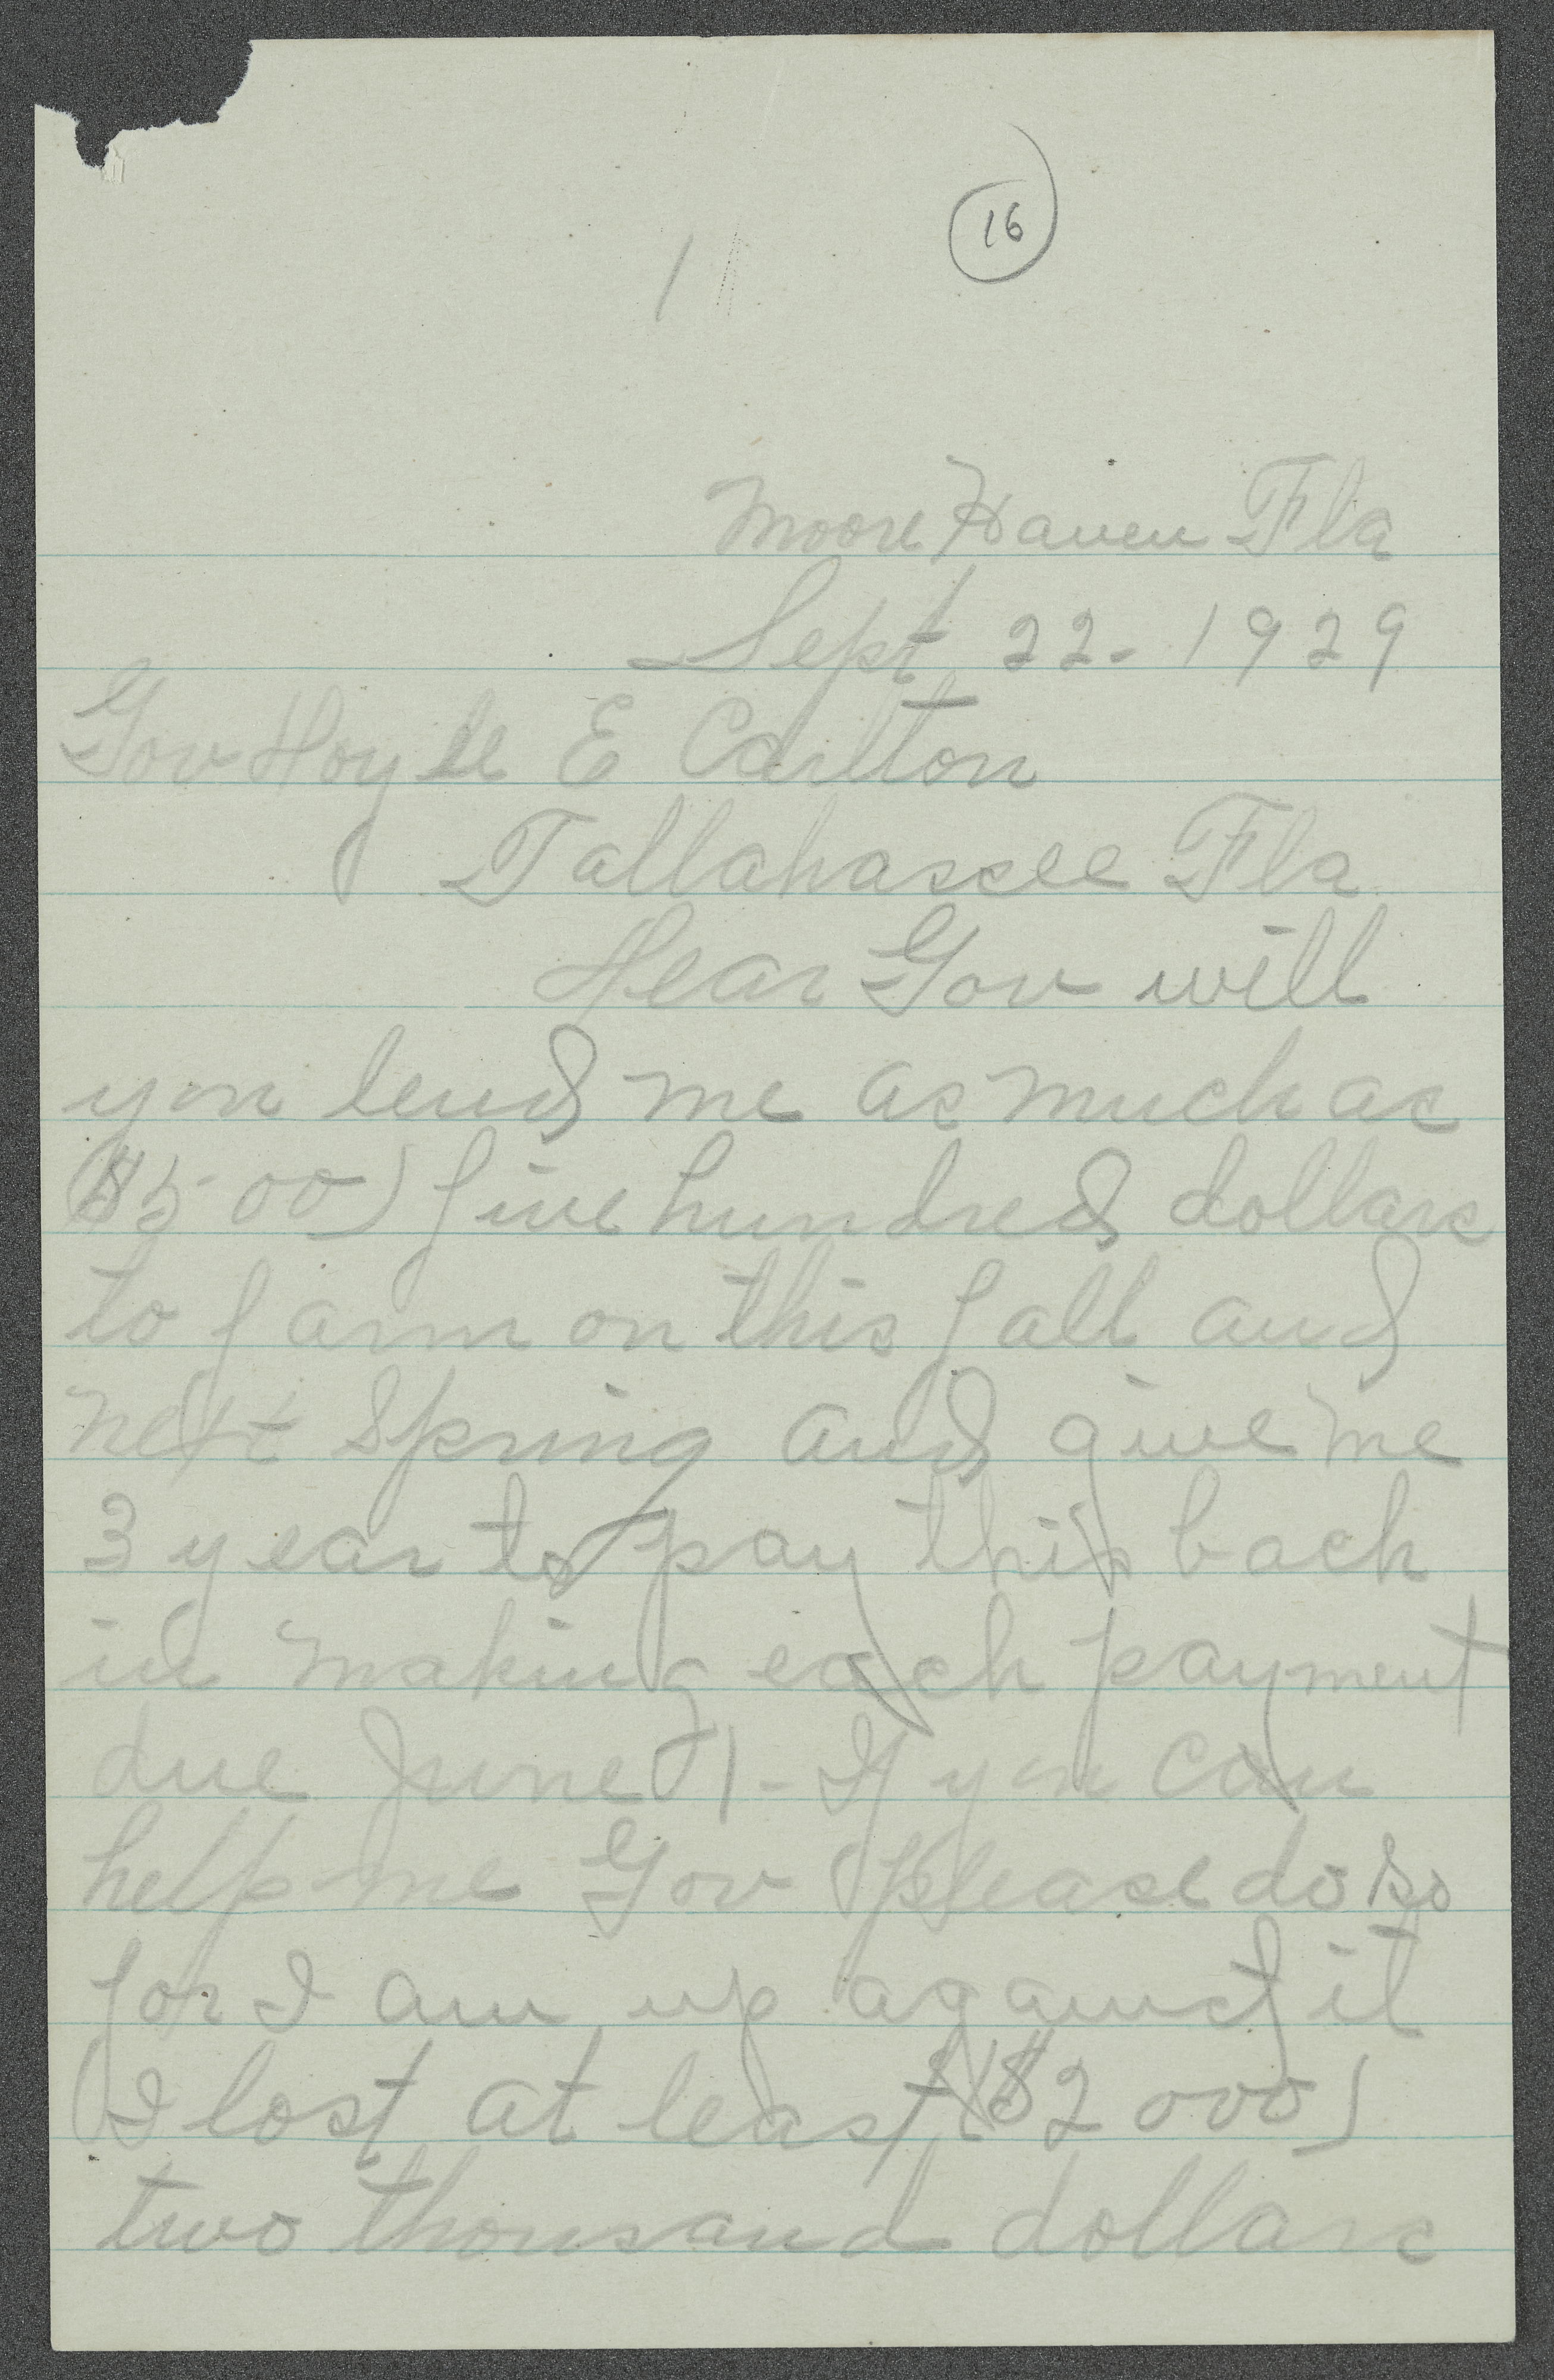 16
1
Moore Haven Fla
Sept 22- 1929
Gov Hoyle E Carlton
Tallahassee Fla
Dear Gov will
you lend me as much as
($500) five hundred dollars
to farm on this fall and
next Spring and give me
3 year to pay this back
in making each payment
due June 1- If you can
help me Gov please do so
for I am up against it
I lost at least ($2000)
two thousand dollars